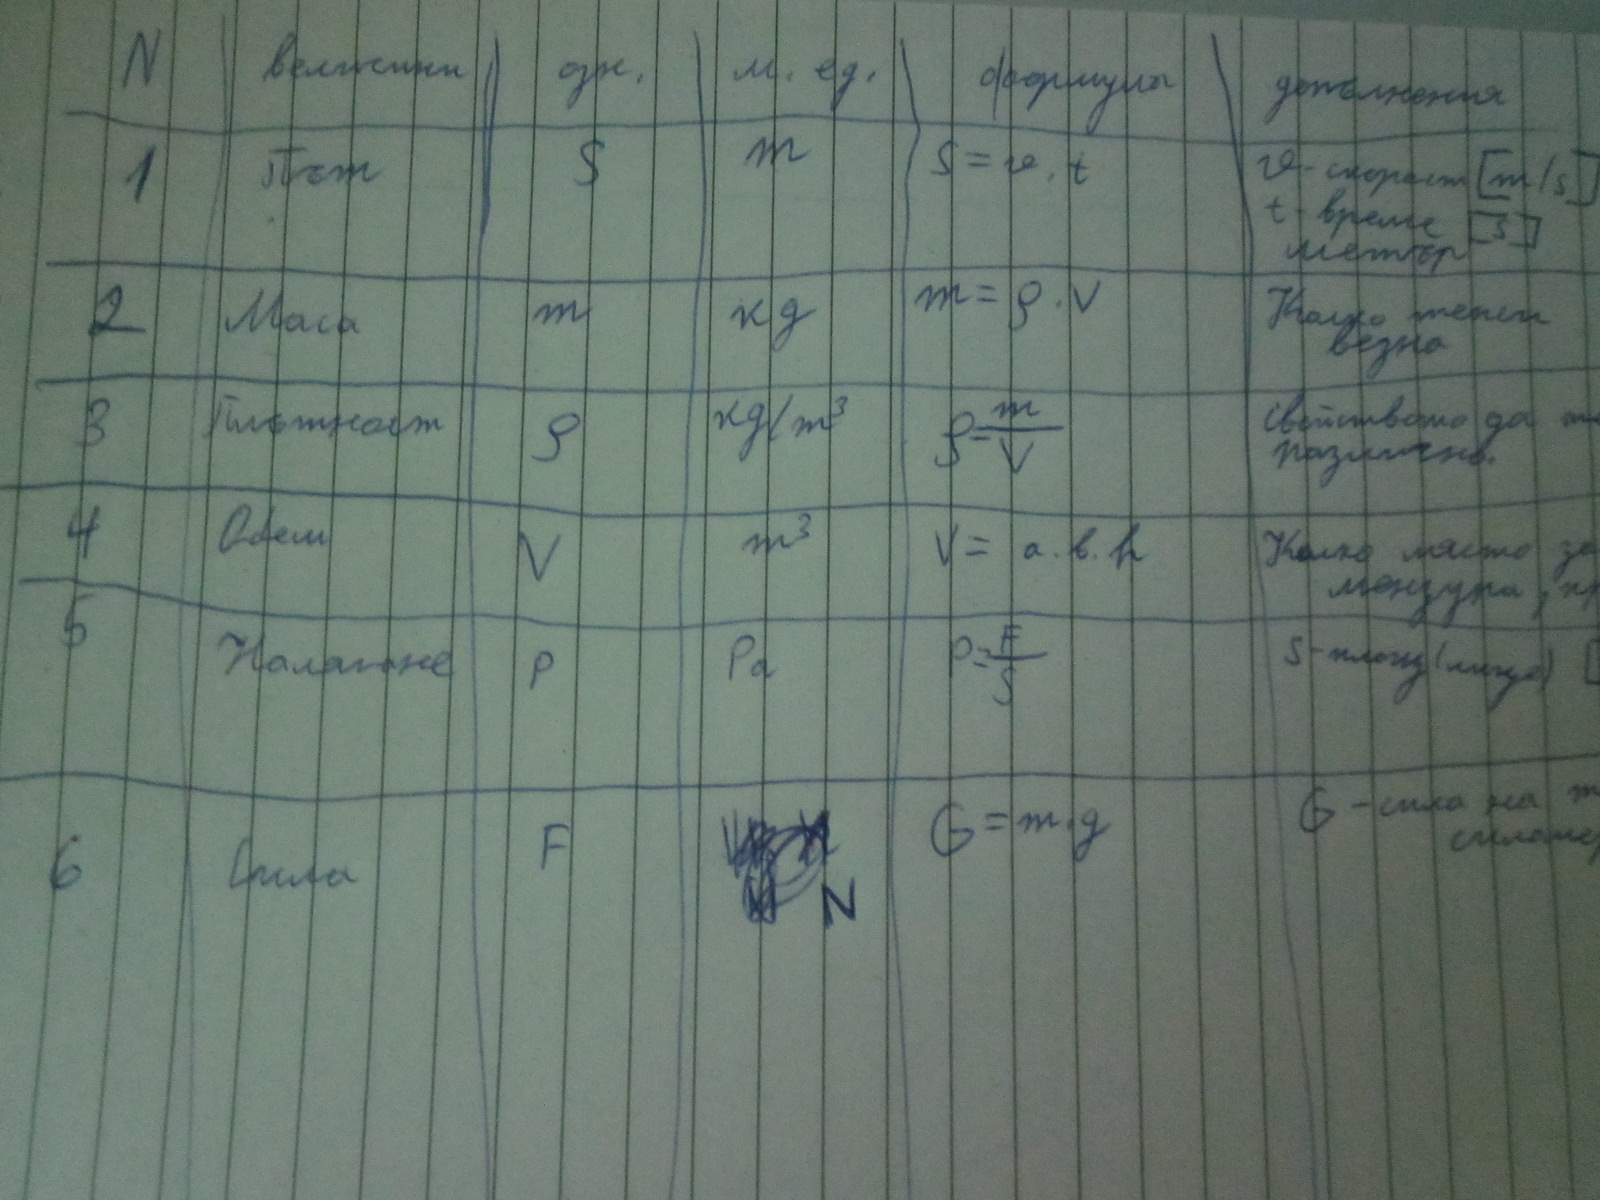 N величини озн. м. ед. формули допълнения
1 Път S m S = v . t v - скорост [m/s]
t - време [s]
метър
2 Маса m кg m = ρ . V Колко тежи
везна
3 Плътност ρ кg/m³ ρ = m/V свойството да
различно.
4 Обем V m³ V = a . b . h Колко място
мензура,
5 Налягане P Pa P = F/S S - площ (лице) [
6 Сила F N G = m . g G - сила на